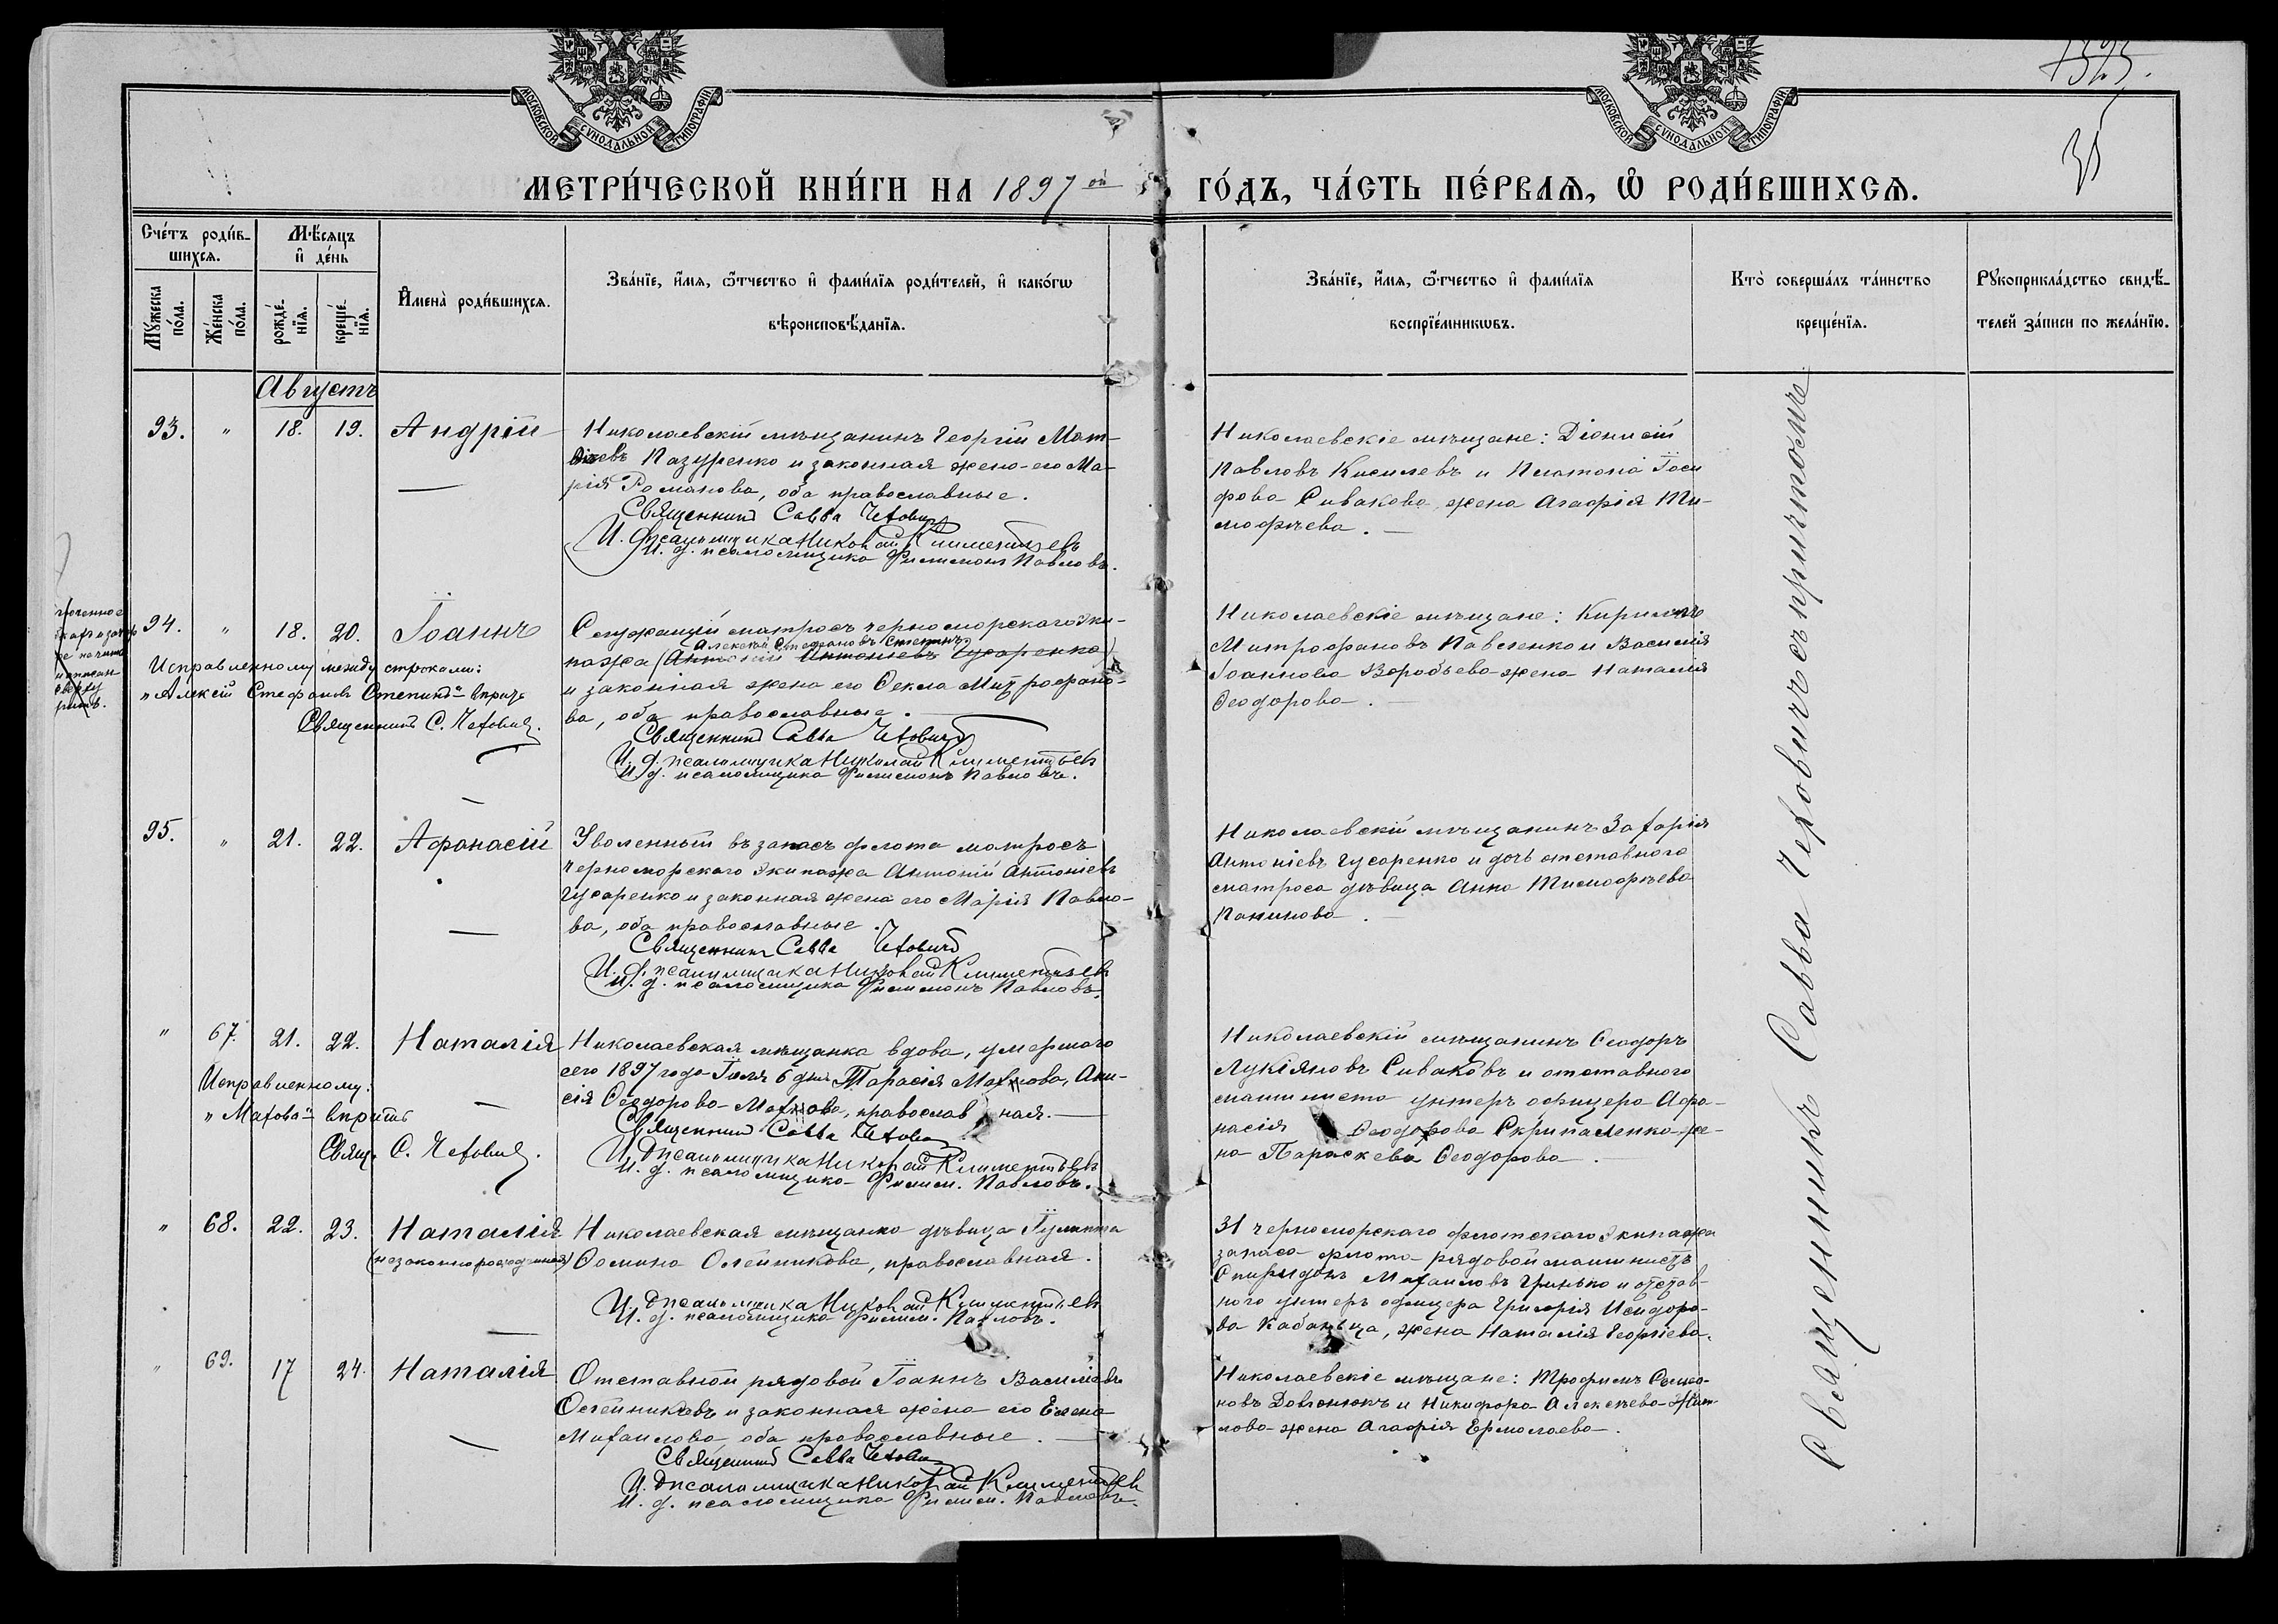 1325.
35
МОСКОВСКОЙ СѴНОДАЛЬНОЙ ТИПОГРАФІИ
МОСКОВСКОЙ СѴНОДАЛЬНОЙ ТИПОГРАФІИ
МЕТРИ́ЧЕСКОЙ КНИ́ГИ НА 1897 ой ГО́ДЪ, ЧА́СТЬ ПЕ́РВАѦ, Ѡ РОДИ́ВШИХСѦ.
Сче́тъ роди́в-
шихсѧ.
Мѣ́сѧцъ
и҆ де́нь
Мꙋ́жеска
по́ла.
Же́нска
по́ла.
рожде́-
нїѧ.
креще́-
нїѧ.
И҆мена̀ роди́вшихсѧ.
Зва́нїе, и҆́мѧ, ѻ҆́тчество и҆ фами́лїѧ роди́телей, и҆ како́гѡ
вѣроисповѣ́данїѧ.
Зва́нїе, и҆́мѧ, ѻ҆́тчество и҆ фами́лїѧ
воспрїе́мникѡвъ.
Кто̀ соверша́лъ та́инство
креще́нїѧ.
Рꙋкоприкла́дство свидѣ́-
телей за́писи по жела́нїю.
Августъ
93. " 18. 19. Андрій
Николаевскій мѣщанинъ Георгій Мат-
ѳіевъ Пазуренко и законная жена его Ма-
рія Романова, оба православные.
Священникъ Савва Чехович
И. д. псаломщика Николай Климентьевъ
И. д. псаломщика Филимонъ Павловъ.
Николаевскіе мѣщане: Діонисій
Павловъ Киселевъ и Платона Іоси
фова Сивакова жена Агафія Ти-
мофѣева.
94. " 18. 20. Іоаннъ
Служащій матросъ черноморскаго эки-
Алексѣй Стефановъ Степинъ
пажа (Антоній Антоніевъ Гусаренко)
и законная жена его Ѳекла Митрофано-
ва, оба православные.
Священникъ Савва Чехович
И. д. псаломщика Николай Климентьев
И. д. псаломщика Филимонъ Павловъ.
Исправленному между строками:
"Алексій Стефановъ Степинъ" вѣрить
Священникъ С. Чехович.
Николаевскіе мѣщане: Кириллъ
Митрофановъ Павленко и Василія
Іоаннова Воробьева жена Наталія
Ѳеодорова.
95. " 21. 22. Афанасій
Уволенный въ запасъ флота матросъ
черноморскаго экипажа Антоній Антоніевъ
Гусаренко и законная жена его Марія Павло-
ва, оба православные.
Священникъ Савва Чехович
И. д. псаломщика Николай Климентьев
И. д. псаломщика Филимонъ Павловъ.
Николаевскій мѣщанинъ Захарія
Антоніевъ Гусаренко и дочь отставного
матроса дѣвица Анна Тимофѣева
Панинова.
" 67. 21. 22. Наталія
Николаевская мѣщанка вдова, умершаго
сего 1897 года Іюля 6 дня Тарасія Махнова, Ани-
сія Ѳеодорова Махнова, православная.
Священникъ Савва Чехович
И. д. псаломщика Николай Климентьевъ
И. д. псаломщика Филим. Павловъ.
Исправленному:
"Махова" вѣрить
Свящ. С. Чехович.
Николаевскій мѣщанинъ Ѳеодоръ
Лукіяновъ Сиваковъ и отставного
машиниста унтеръ офицера Афа-
насія Ѳеодорова Скрипаленко же-
на Параскева Ѳеодорова.
" 68. 22. 23. Наталія
(незаконнорожденная)
Николаевская мѣщанка дѣвица Іулитта
Ѳомина Олейникова, православная.
И. д. псаломщика Николай Климентьев
И. д. псаломщика Филим. Павловъ.
31 черноморскаго флотскаго экипажа
запаса флота рядовой машинистъ
Спиридонъ Михаиловъ Гринько и отстав-
ного унтеръ офицера Григорія Исидоро-
ва Кабанца, жена Наталія Георгіева.
" 69. 17 24. Наталія
Отставной рядовой Іоаннъ Василіевъ
Олейниковъ и законная жена его Елена
Михаилова оба православные.
Священникъ Савва Чехович
И. д. псаломщика Николай Климентьев
И. д. псаломщика Филим. Павловъ.
Николаевскіе мѣщане: Трофимъ Симо-
новъ Довгонюкъ и Никифора Алексѣева
лова жена Агафія Ермолаева.
Священникъ Савва Чеховичъ съ причтомъ